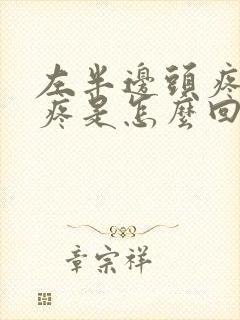 左半邊頭疼
疼是怎麼回
章宗祥